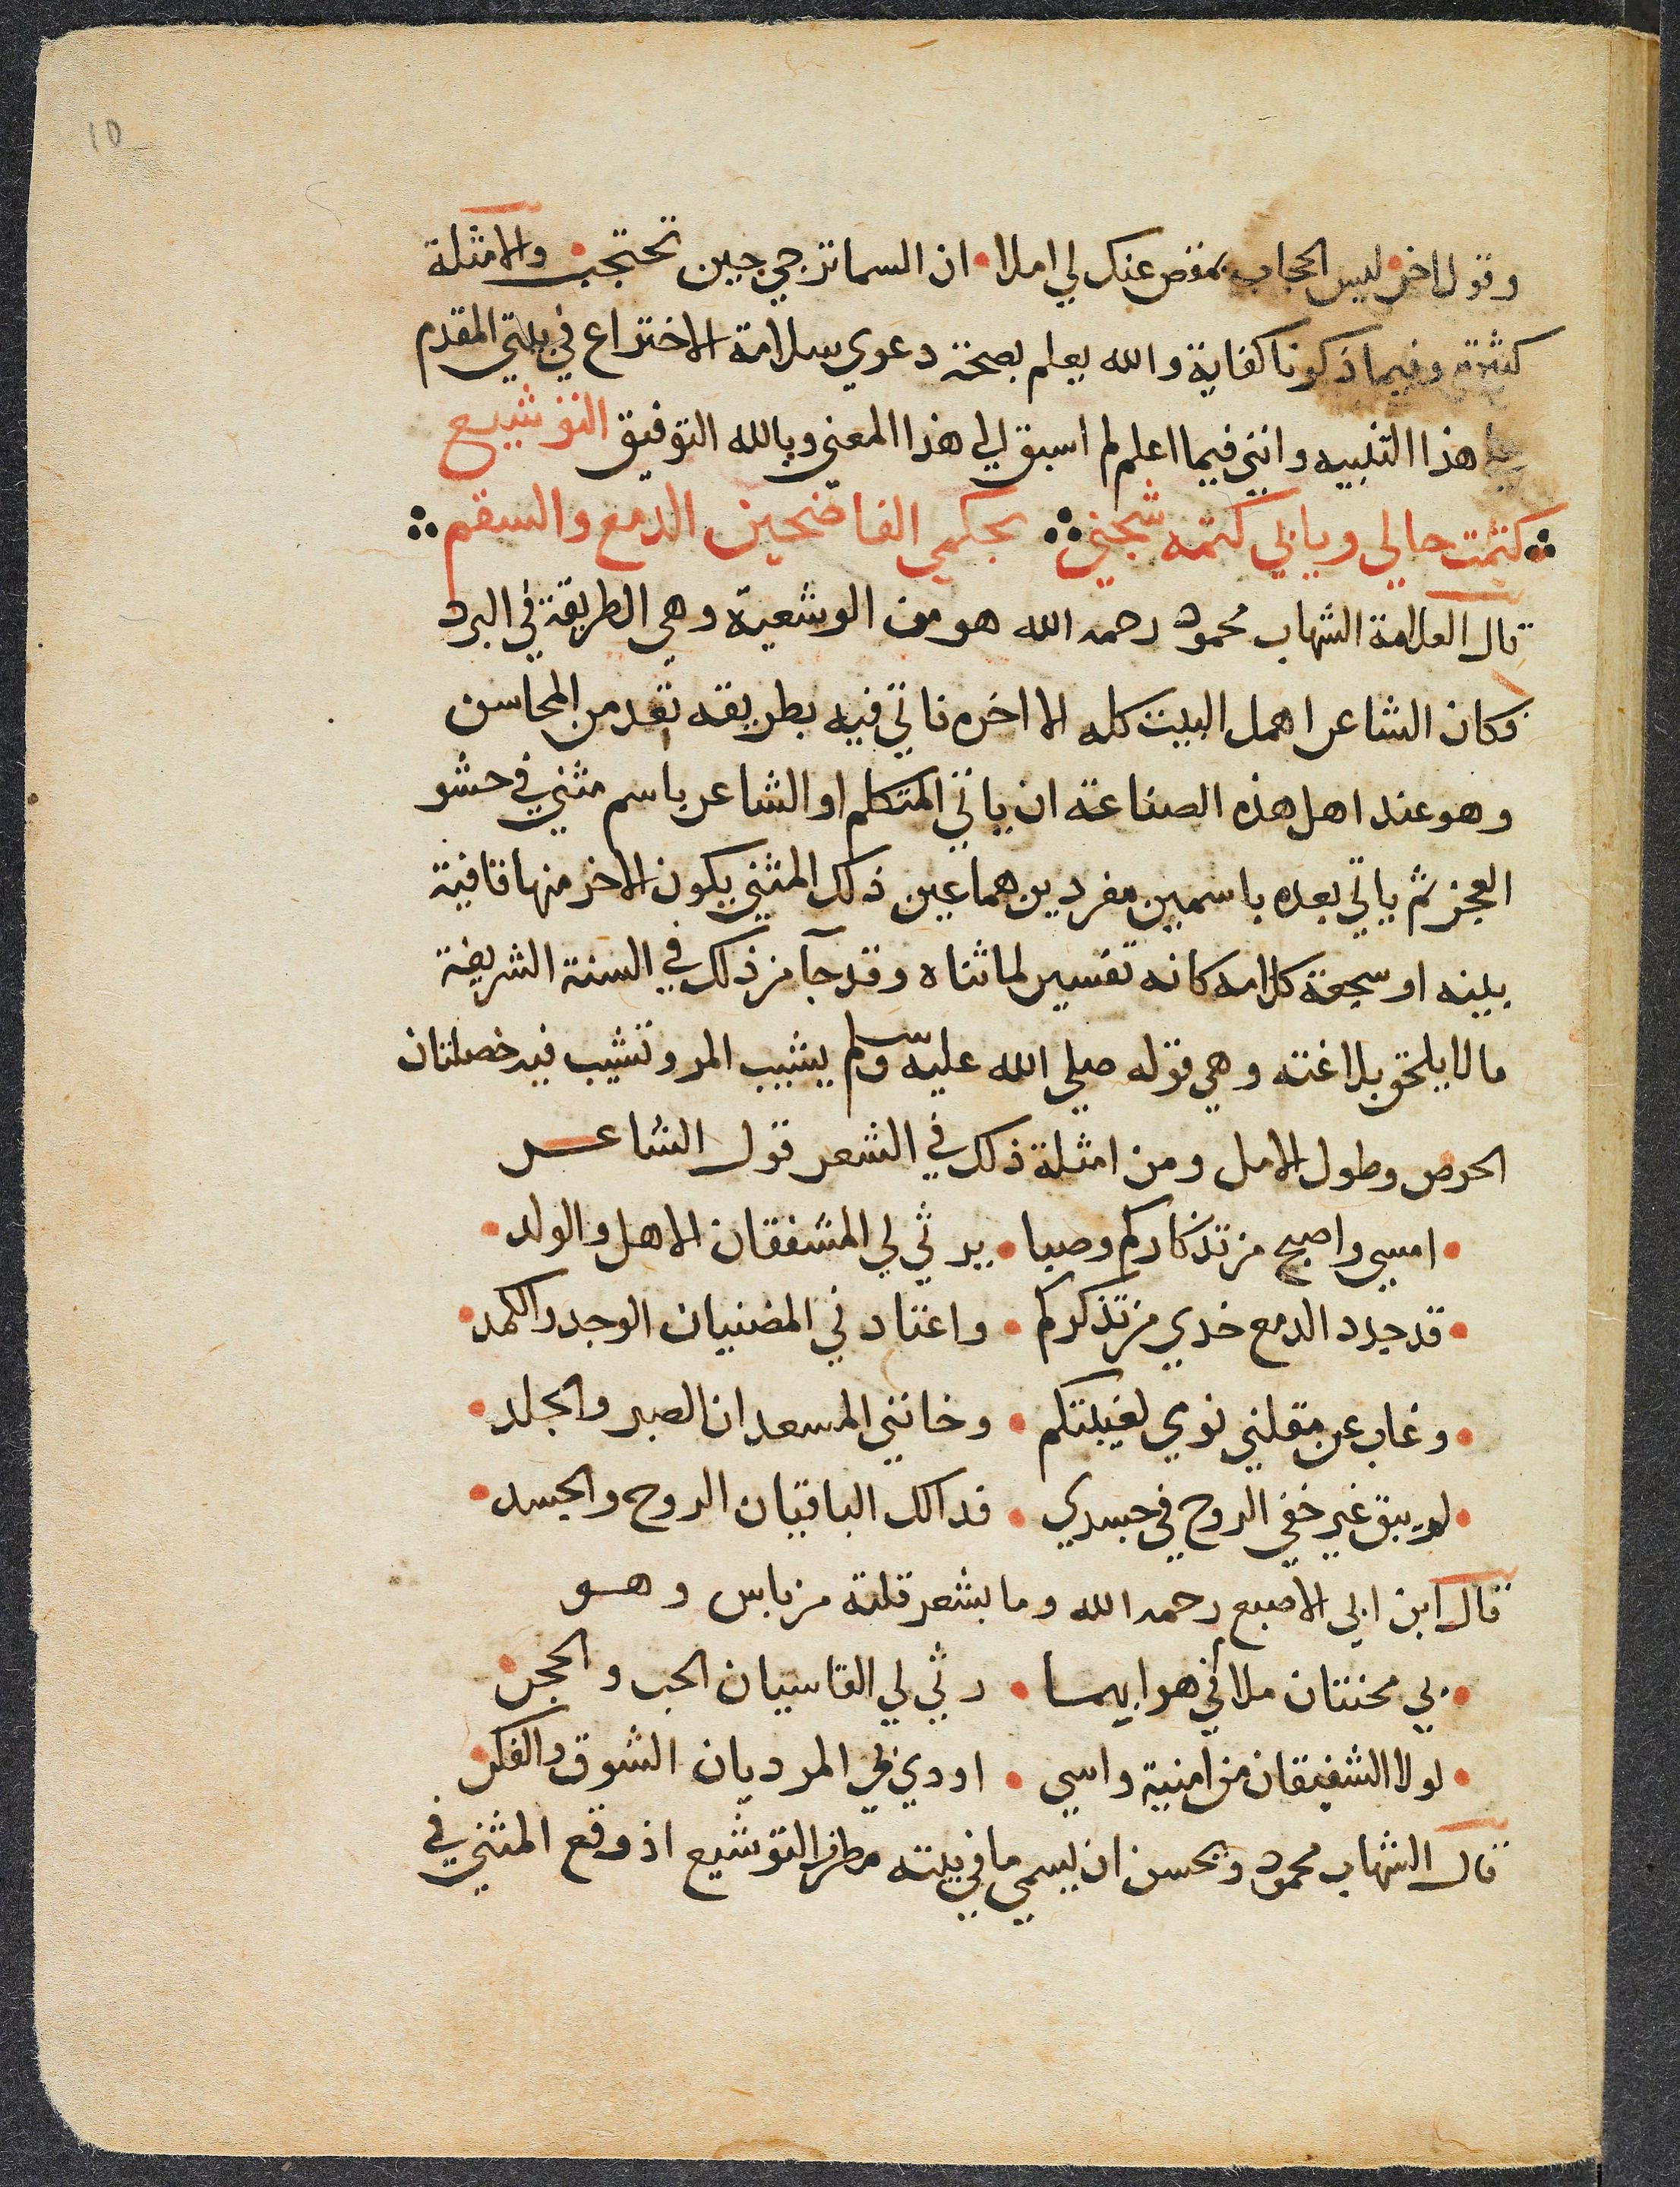 10
وقول اخر ليس الحجاب بمقص عنك لي املا • ان السما ترجي حين تحتجب • والامثلة
كثيرة وفيما ذكرنا كفاية والله يعلم بصحة دعوي سلامة الاختراع في بيتي المقدم
هذا التنبيه وانني فيما اعلم لم اسبق الي هذا المعني وبالله التوفيق التوشيع
كتمت حالي ويابي كتمه شجني بحكمي الفاضحين الدمع والسقم
قال العلامة الشهاب محمود رحمه الله هو من الوشعية وهي الطريقة في البرد
فكان الشاعر اهمل البيت كله الا اخره فاتي فيه بطريقه تعد من المحاسن
وهو عند اهل هذه الصناعة ان ياتي المتكلم او الشاعر باسم مثني في حشو
العجز ثم ياتي بعده باسمين مفردين هما عين ذلك المثني يكون الاخر منها قافية
بيته او سجعة كلامه كانه تفسير لما ثناه وقد جآ من ذلك في السنة الشريفة
ما لا يلحق بلاغته وهي قوله صلي الله عليه وسلم يشيب المر وتشيب فيه خصلتان
الحرص وطول الامل ومن امثلة ذلك في الشعر قول الشاعر
• امسي واصبح من تذكاركم وصبا • يرثي لي المشفقان الاهل والولد •
• قد حدد الدمع خدي من تذكركم • واعتادني المضنيان الوجد والكمد •
• وغاب عن مقلتي نومي لغيبتكم • وخانني المسعدان الصبر والجلد •
• لم يبق غير خفي الروح في جسدي • فداك الباقيان الروح والجسد •
قال ابن ابي الاصبع رحمه الله وما بشعر قلته من باس وهو
• بي محنتان ملا في هوا بهما • رثي لي القاسيان الحب والحجر •
• لولا الشفيقان من امنية واسي • اودي بي المرديان الشوق والفكر •
قال الشهاب محمود ويحسن ان يسمي ما في بيته مطرف التوشيع اذ وقع المثني في